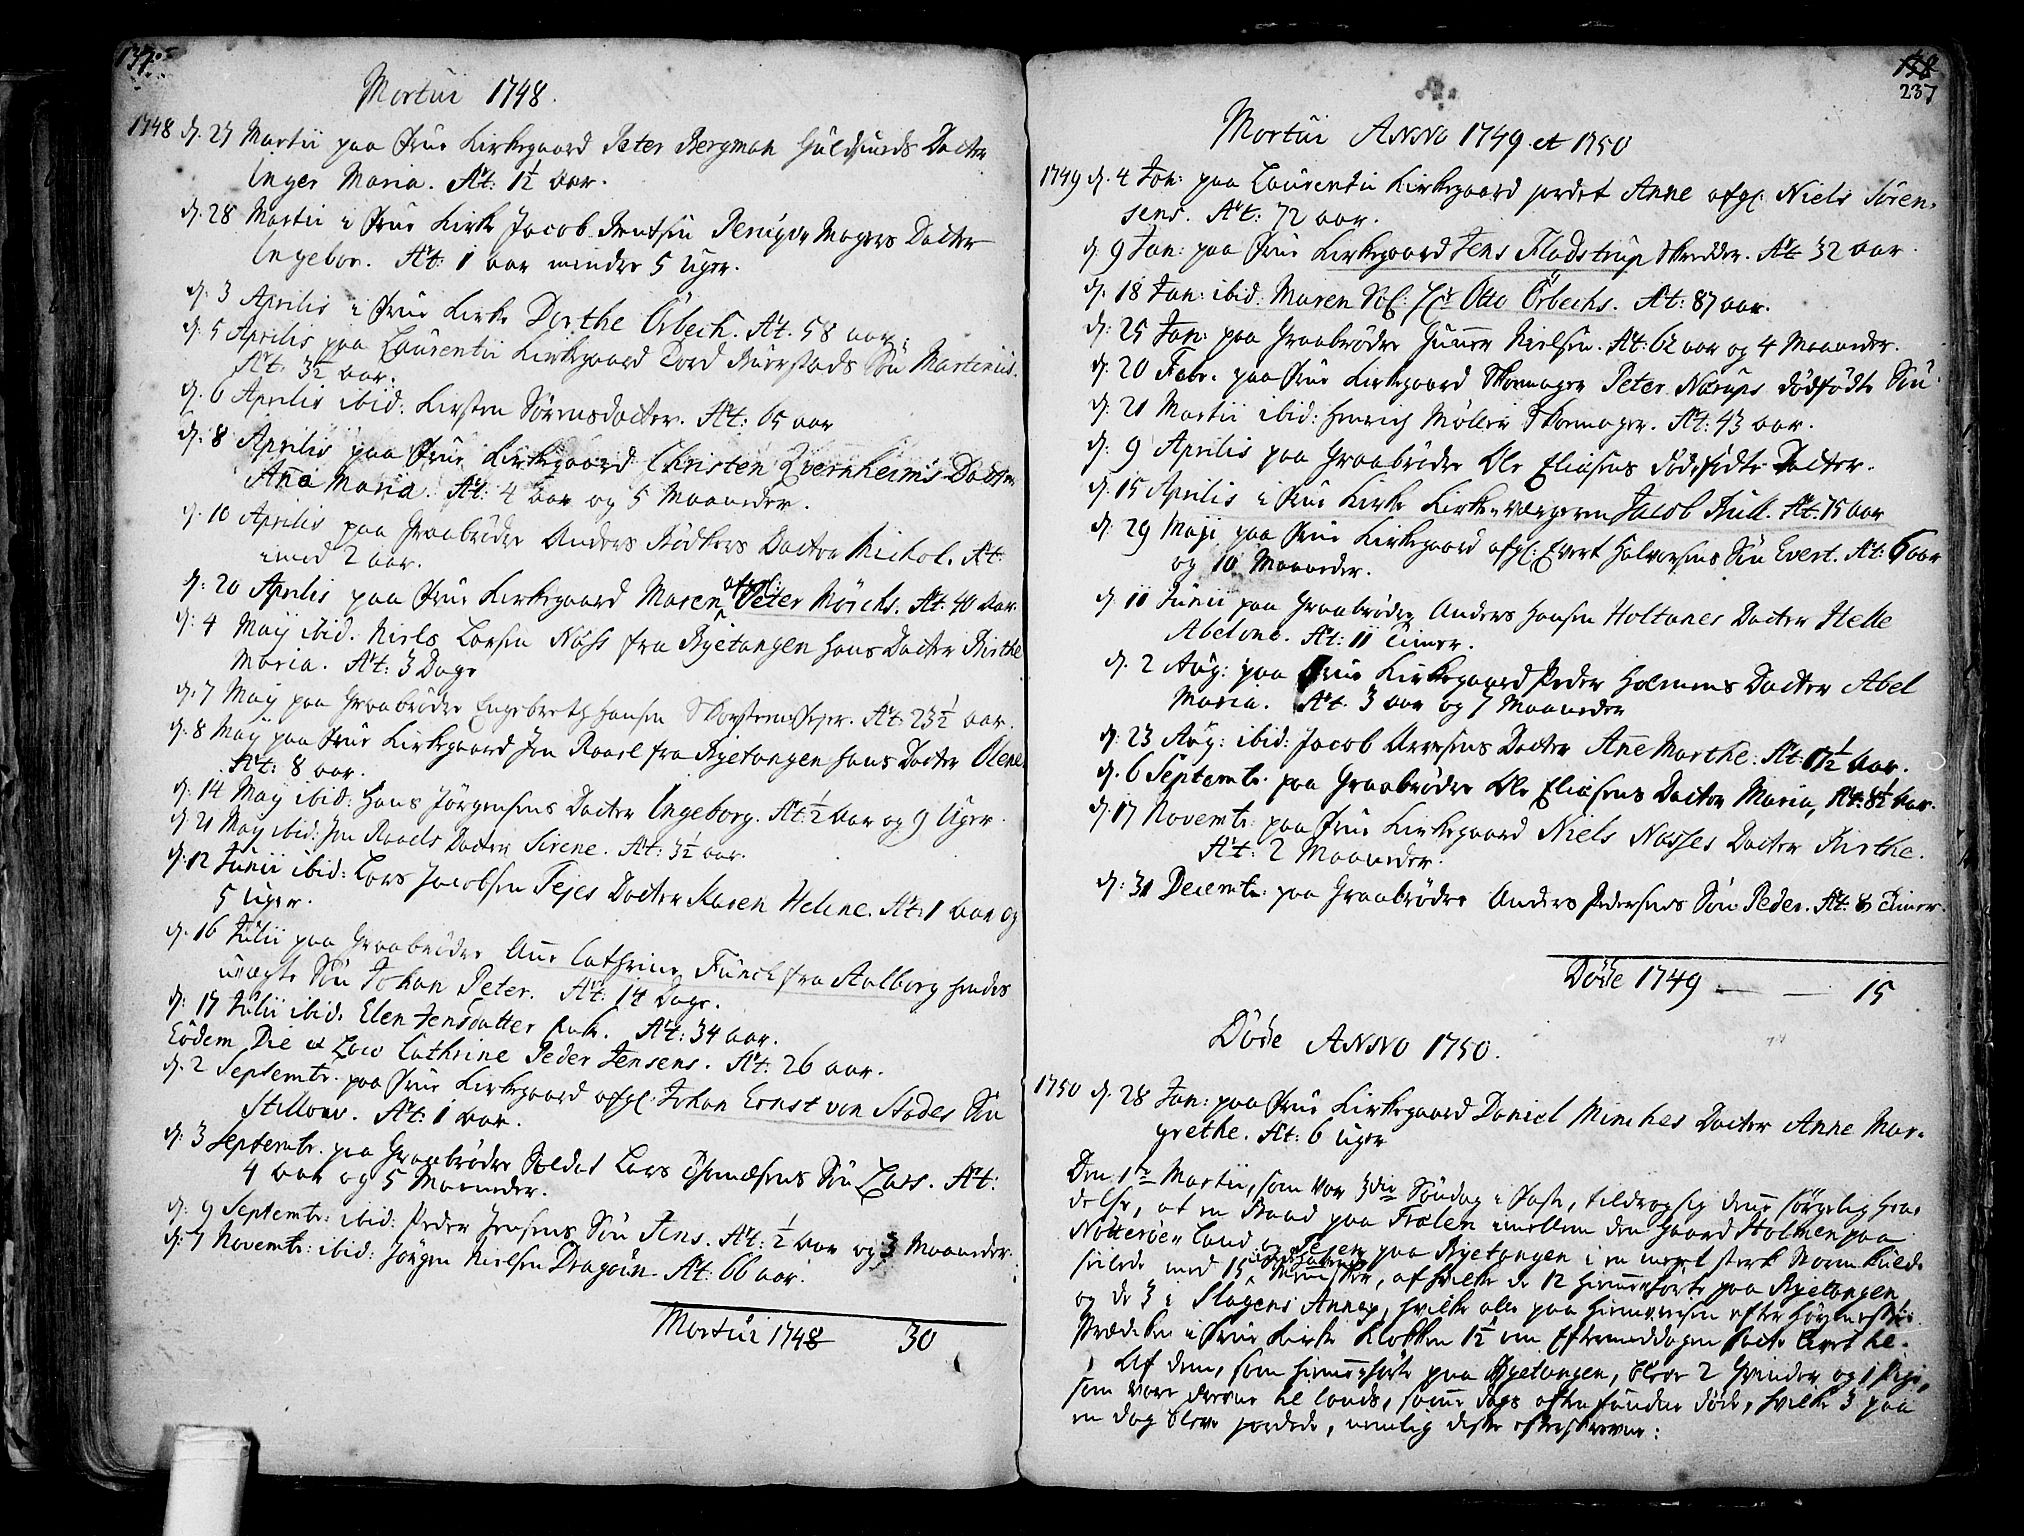 137.
Mortui 1748.
1748 d. 27 Martii paa Frue Kirkegaard Peter Bergman Guldsmeds Dotter
Inger Maria. Æt: 1½ aar.
d. 28 Martii i Frue Kirke Jacob Bentsen Magers Dotter
Ingebor. Æt: 1 aar mindre 5 Uger.
d: 3 Aprilis i Frue Kirke Dorthe Örbech. Æt. 58 aar.
d. 5 Aprilis paa Laurentii Kirkegaard Tord Buerstads Søn Martinus.
Æt. 3½ aar.
d. 6 Aprilis ibid: Kirsten Sørensdotter. Æt: 65 aar
d. 8 Aprilis paa Frue Kirkegaard Christen Qvernheims Dotter
Anna Maria. Æt: 4 aar og 5 Maaneder.
d. 10 Aprilis paa Graabrødre Anders Bødkers Dotter Michol. Æt
imod 2 aar.
d: 20 Aprilis paa Frue Kirkegaard Maren afgl: Peter Mörchs. Æt. 40 aar.
d: 4 Maij ibid. Niels Larsen Næss fra Byetangen hans Dotter Birthe
Maria. Æt: 3 Dage
d. 7 Maij paa Graabrødre Engebreth Hansen Skorsteensfejer. Æt. 23½ aar.
d. 8 Maij paa Frue Kirkegaard Jon Raael fra Byetangen hans Dotter Olene
Æt: 8 aar.
d: 14 Maij ibid: Hans Jörgensens Dotter Ingeborg. Æt: ½ aar og 9 Uger.
d 21 Maij ibid: Jon Raaels Dotter Sirene. Æt: 3½ aar.
d. 12 Junii ibid: Lars Jacobsen Fejes Dotter Karen Helene. Æt: 1 aar og
5 Uger.
d. 16 Julii paa Graabrødre Ane Cathrine Funck fra Aalborg hendes
uægte Søn Johan Peter. Æt: 14 Dage.
d: 17 Julii ibid: Elen Jensdatter Æt: 34 aar.
Eodem Die et Loco Cathrine Peder Jensens. Æt: 26 aar.
d. 2 Septembr. paa Frue Kirkegaard afgl. Johan Ernst von Stades Søn
Stillow. Æt: 1 aar.
d: 3 Septembr. paa Graabrødre Soldat Lars Thomæsens Søn Lars. Æt:
4 aar og 5 Maaneder.
d. 9 Septembr: ibid: Peder Jensens Søn Jens. Æt: ½ aar og 3 Maaneder
d: 7 Novembr: ibid: Jörgen Nielsen Dragoun. Æt: 66 aar.
Mortui 1748 30
138
237
Mortui ANNO 1749 et 1750
1749 d. 4 Jan: paa Laurentii Kirkegaard jordet Anne afgl: Niels Sören-
sens. Æt: 72 aar.
d. 9 Jan: paa Frue Kirkegaard Jens Fladstrup Skredder. Æt 32 aar.
d. 18 Jan: ibid: Maren Sal: Hr Otto Örbechs. Æt: 87 aar.
d: 25 Jan: paa Graabrødre Gunner Nielsen. Æt: 62 aar og 4 Maaneder.
d. 20 Febr. paa Frue Kirkegaard Skomager Peter Narups dödfödte Søn
d. 21 Martii ibid: Henrich Møller Skomager. Æt: 43 aar.
d: 9 Aprilis paa Graabrødre Ole Eliasens dödfödte Dotter.
d. 15 Aprilis i Frue Kirke Kirke-værgeren Jacob Bull. Æt. 75 aar
d. 29 Maji paa Frue Kirkegaard afgl: Evert Halvorsens Søn Evert. Æt: 6 aar
og 10 Maaneder.
d. 11 Junii paa Graabrødre Anders Hansen Holtanes Dotter Helle
Abelone. Æt: 11 Timer.
d. 2 Aug: paa Frue Kirkegaard Peder Holmens Dotter Abel
Maria. Æt. 3 aar og 7 Maaneder
d. 23 Aug: ibid: Jacob Arvesens Dotter Anne Marthe. Æt: 1½ aar.
d. 6 Septembr. paa Graabrødre Ole Eliasens Dotter Maria, Æt: 8½ aar.
d. 17 Novembr: paa Frue Kirkegaard Niels Næsses Dotter Birthe.
Æt: 2 Maaneder.
d: 31 Decembr: paa Graabrødre Anders Pedersens Søn Peder. Æt: 8 Timer.
Døde 1749 15
Døde ANNO 1750.
1750 d. 28 Jan: paa Frue Kirkegaard Daniel Minches Dotter Anne Mar-
grethe. Æt: 6 Uger
Den 1te Martii, som var 3die Söndag i Faste, tildrog sig denne sørgelig Hen-
delse, at en Baad paa Træelen imellem den Gaard Holmen paa
Nötterøe Land og Fejen paa Byetangen i en meget sterk Norn Kulde
seilede med 15 Mennisker, af hvilke de 12 hiemmehørte paa Byetangen
og de 3 i Slagens Annex, hvilke alle paa hiemreisen efter Höymesse
Prædiken i Frue Kirke Klokken 1½ om Eftermiddagen
Af dem, som hiemmehørte paa Byetangen, bleve 2 Qvinder og 1 Pige,
som vare drevne til lands, samme dags aften fundne døde, hvilke 3 paa
en dag bleve jordede, nemlig disse efterskrevne: